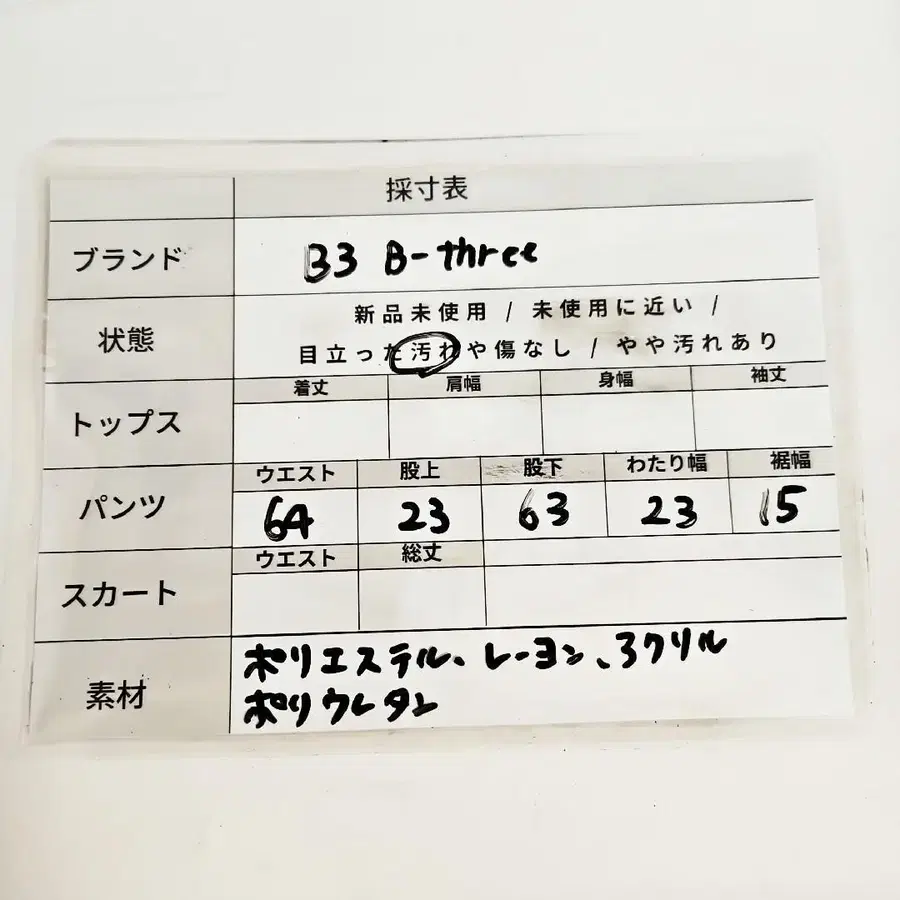 採寸表
ブランド B3 B-three
状態 新品未使用 / 未使用に近い /
目立った汚れや傷なし / やや汚れあり
トップス 着丈 肩幅 身幅 袖丈
パンツ ウエスト 股上 股下 わたり幅 裾幅
64 23 63 23 15
スカート ウエスト 総丈
素材 ポリエステル、レーヨン、アクリル
ポリウレタン